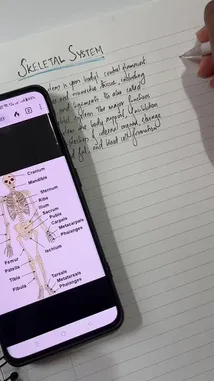 SKELETAL SYSTEM
system is your body's central framework
and connective tissue, including
and ligaments. It's also called
system. The major functions
are body support,
of internal organs, storage
fat, and blood cell formation
Cranium
Mandible
Sternum
Ribs
Ilium
Sacrum
Pubis
Carpals
Metacarpals
Phalanges
Ischium
Femur
Patella
Tibia
Fibula
Tarsals
Metatarsals
Phalanges